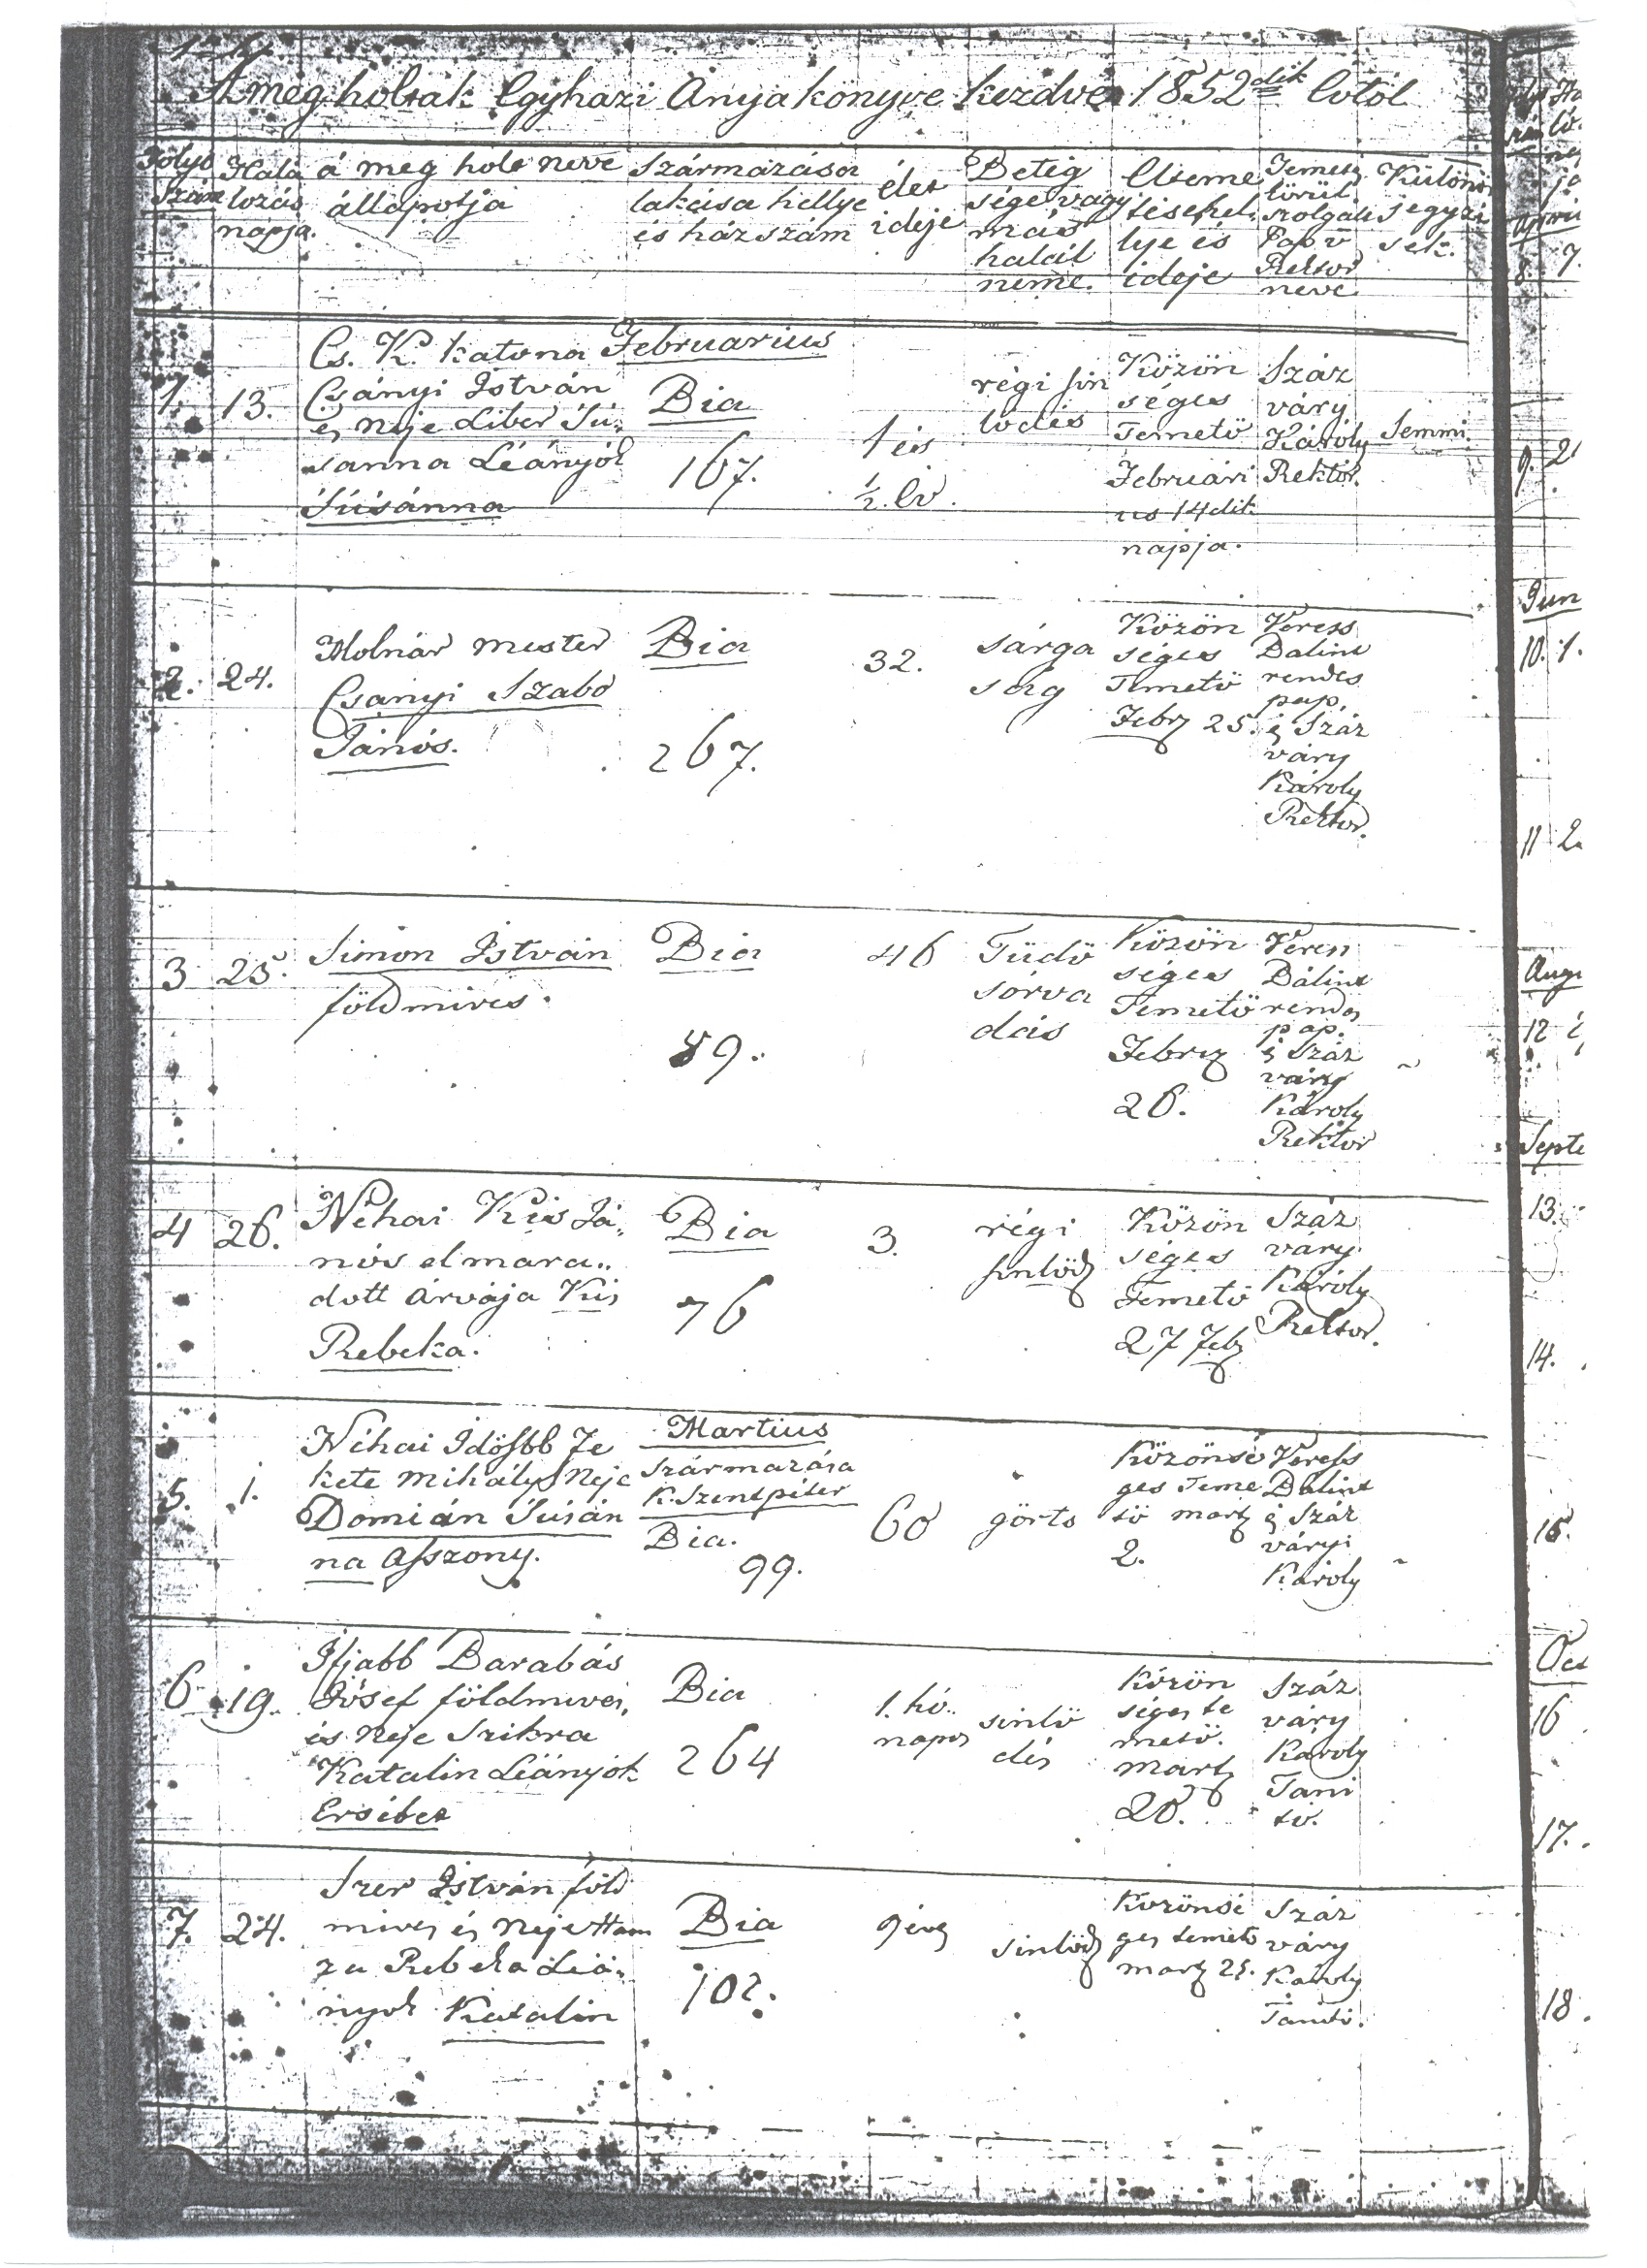 A meg holtak Egyhazi Anyakönyve kezdve 1852dik Évtöl
Folyo Szám
Halá lozás napja.
á meg holt neve állapotja
Származása lakása hellye és házszám
élet ideje
Beteg sége vagy más halál neme.
Elteme tése hel lye és ideje
Temetés körül szolgált Pap v Rektor neve
Különös jegyzé sek.
Februarius
1.
13.
Cs. K. katona
Csányi István
és Neje Liber Sú,,
sanna Leányok
Súsánna
Bia
167.
1 és
1/2 Év.
régi sin
lödés
Közön
séges
Temetö
Februári
us 14dik
napja.
Száz
váry
Károly
Rektor.
Semmi
2.
24.
Molnár mester
Csanyi Szabo
János.
Bia
267.
32.
Sárga
ság
Közön
séges
Temetö
Febr 25.
Veress
Balint
rendes
pap.
és Száz
váry
Károly
Rektor.
3
25.
Simon István
földmives.
Bia
89.
46
Tüdö
sorva
dás
Közön
séges
Temetö
Febr
26.
Veress
Bálint
rendes
pap.
és Száz
váry
Károly
Rektor
4
26.
Néhai Kis Já,,
nós elmara,,
dott Árvája Kis
Rebeka.
Bia
76
3.
régi
sinlödés
Közön
séges
Temetö
27 Feb
Száz
váry
Károly
Rektor.
Martius
5.
1.
Néhai Idösbb Fe
kete Mihály Neje
Domián Súsán
na Asszony.
Származása
K. Szentpéter
Bia.
99.
60
görts
Közönsé
ges Teme
tö mart
2.
Veress
Balint
és Száz
váryi
Károly
6
19.
Ifjabb Barabás
Jósef földmives,
és Neje Szikra
Katalin Leányok
Ersébet
Bia
264
1. hó,,
napos
sinlö
dés
Közön
séges te
metö.
mart
20.
Száz
váry
Karoly
Tani
tó.
7.
24.
Szer István föld
mives és Neje Ham
za Rebeka Leá,,
nyok Katalin
Bia
102.
9 éves
sinlödés
Közönsé
ges temetö
mart 25.
Száz
váry
Károly
Tanitó.
8.
7.
9.
Jun
10.
1.
11
Aug
12
Septe
13.
14.
15.
Oct
16
17.
18.